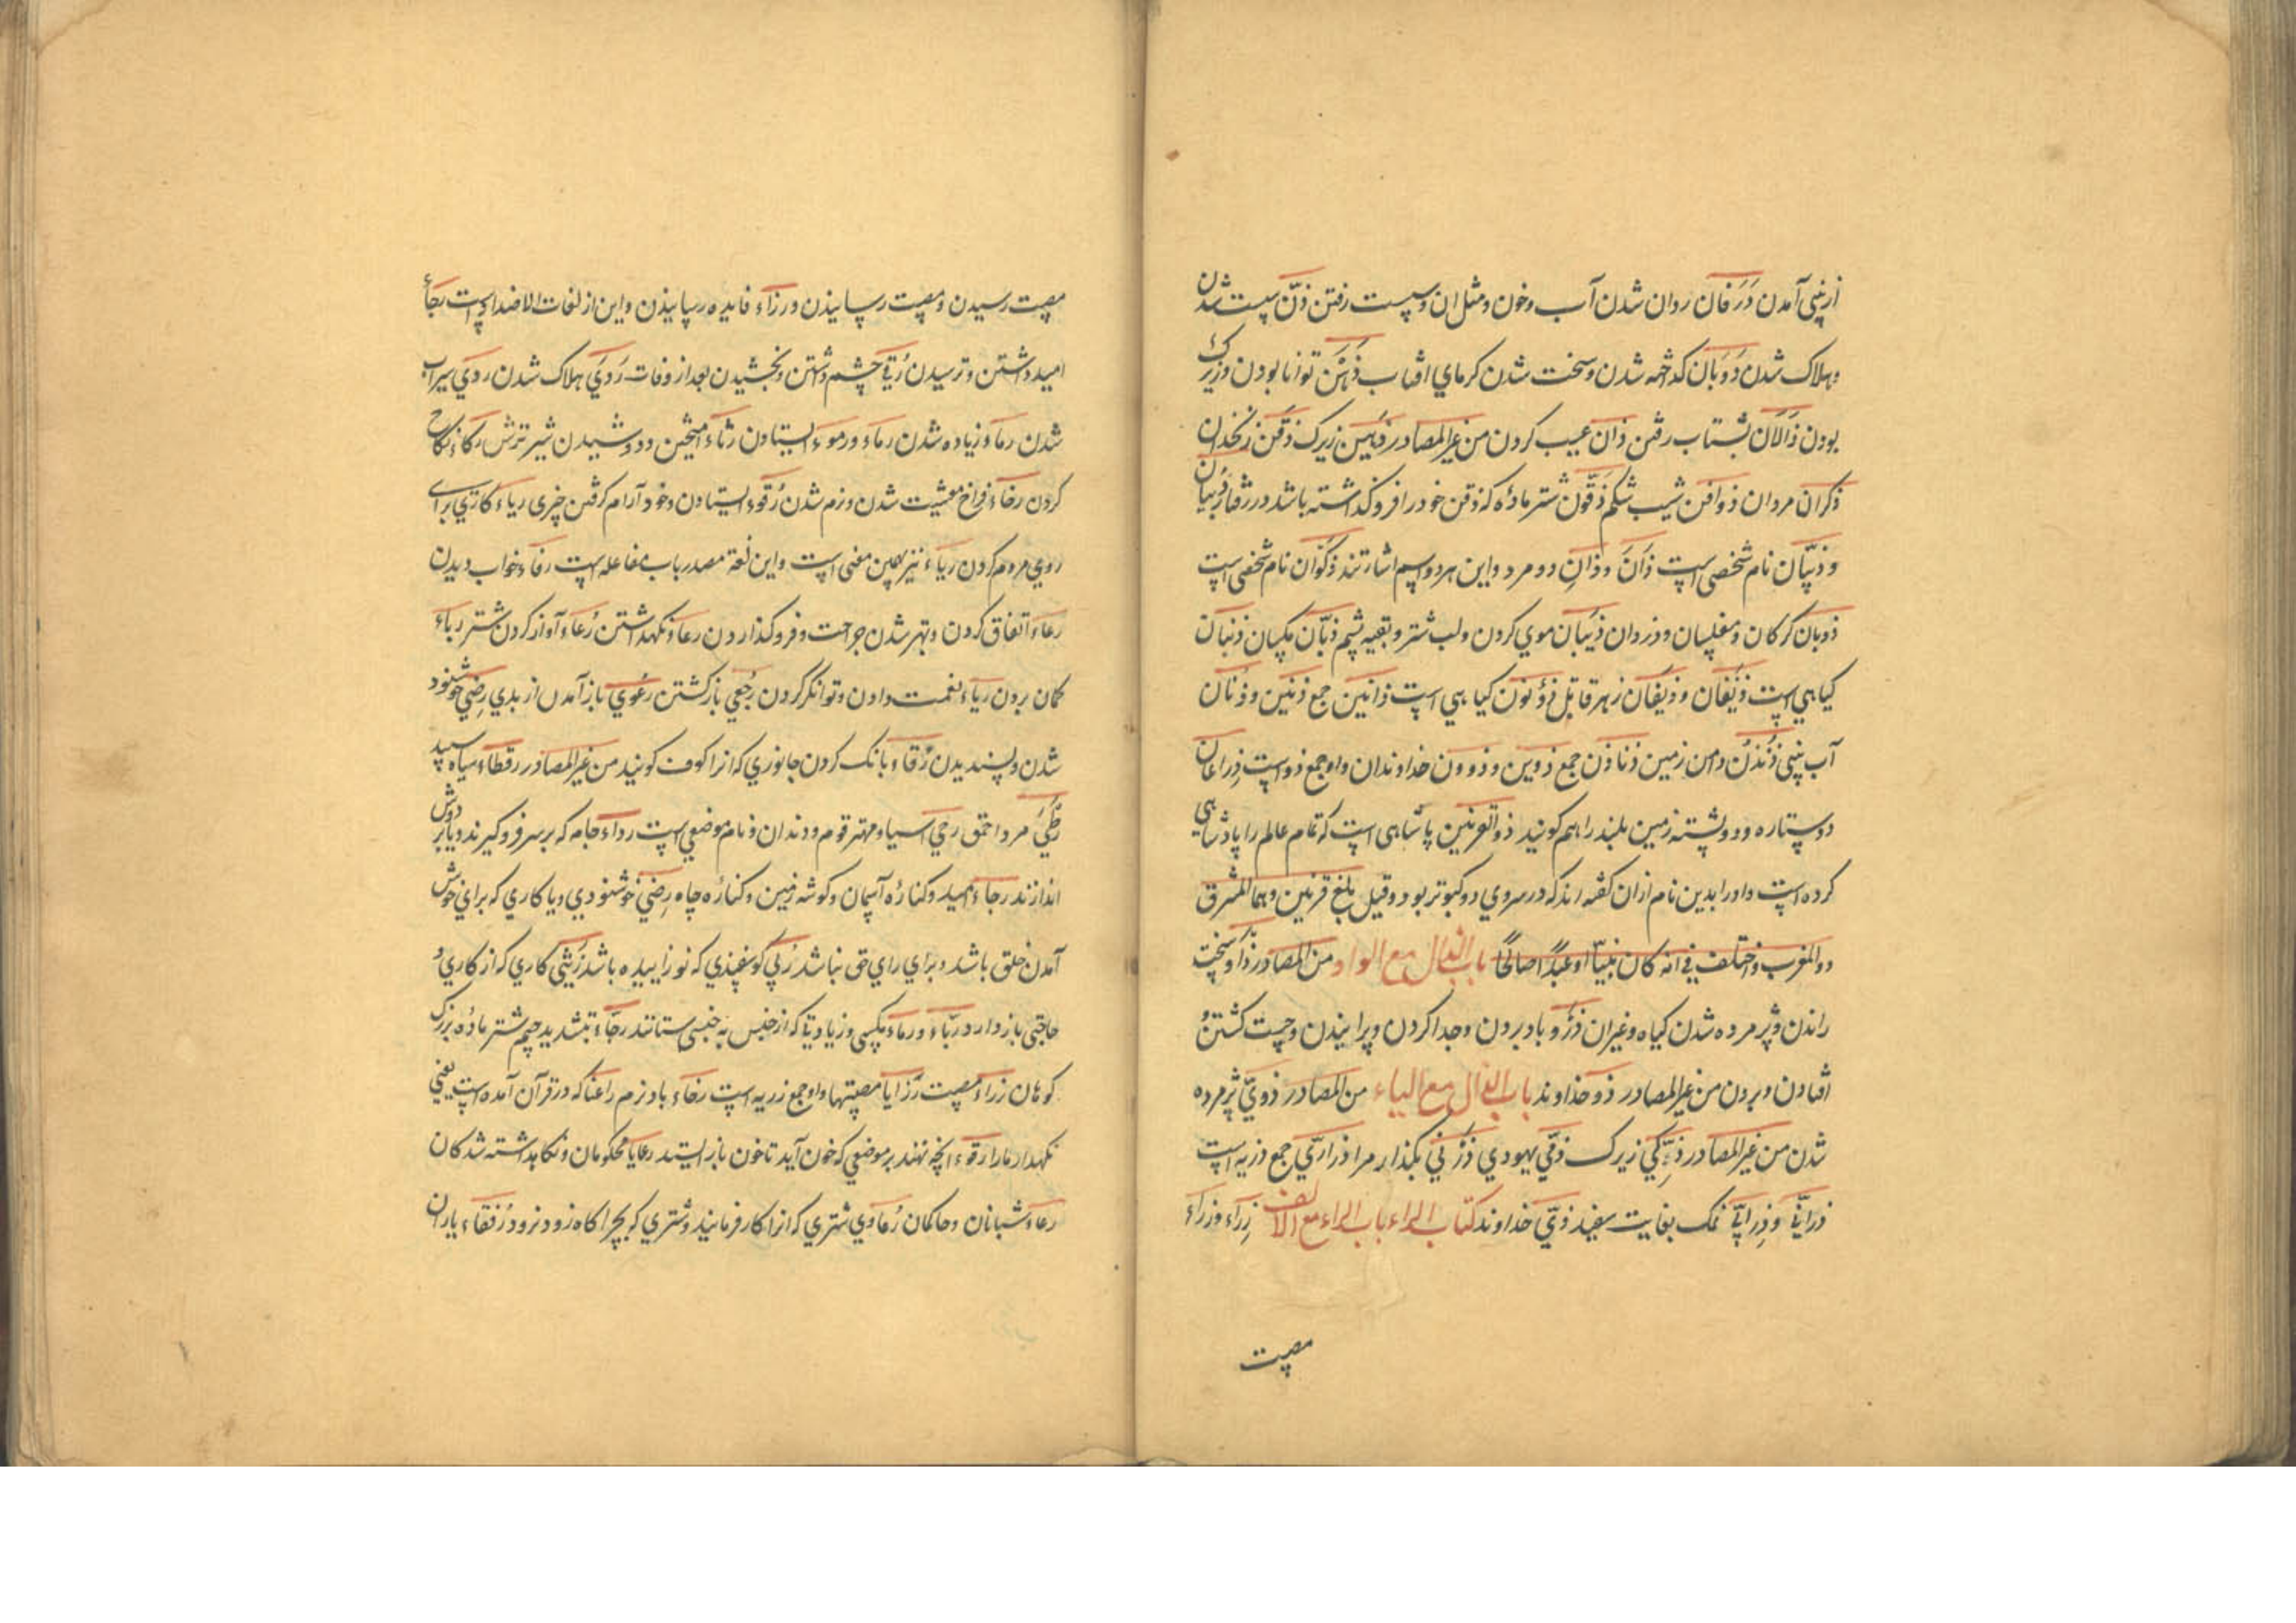 از بینی آمدن ذَرَفان روان شدن آب و خون و مثل ان و سست رفتن ذنّ سست شدن
و هلاک شدن ذَوَبان کداخته شدن و سخت شدن کرمای افتاب ذَهَن توانا بودن و زیرک
بودن ذَالَان بشتاب رفتن ذان عیب کردن من غیر المصادر ذهین زیرک ذقن زنخدان
ذکران مردان ذواقن شیب شکم ذقون شتر ماده که ذقن خود را فرو کذاشته باشد در رفتار ذبیان
و ذبیّان نام شخصی است ذانَ و ذانِ دو مرد و این هر دو اسم اشارتند ذکوان نام شخصی است
ذوبان کرکان و مفلسان و دزدان ذیبان موی کردن و لب شتر و بقیه پشم ذبّان مکسان ذنبان
کیاهی است ذیفان و ذیفان زهر قاتل ذؤنون کیاهی است ذانین جمع ذنین و ذنان
آب بینی ذُنذُن دامن زمین ذناذن جمع ذوین و ذوون خداوندان واو جمع ذو است ذراعان
دو ستاره و دو پشته زمین بلند را هم کویند ذو القرنین پاشاهی است که تمام عالم را پادشاهی
کرده است و او را بدین نام از ان کفته اند که در سر وی دو کیسو بود و قیل بلغ قرنین و هما المشرق
والمغرب واختلف فی انه کان نبیّا او عبدًا صالحًا باب الذال مع الواو من المصادر ذاو سخت
راندن و پژمرده شدن کیاه و غیر ان ذَرْو باد بردن و جدا کردن و پرانیدن و جست کشتن و
افتادن و بردن من غیر المصادر ذو خداوند باب الذال مع الیاء من المصادر ذویّ پژمرده
شدن من غیر المصادر ذکیّ زیرک ذمّی یهودی ذَرْنی بکذار مرا ذراریّ جمع ذریه است
ذرانیّ و ذرانیّ نمک بغایت سفید ذی خداوند کتاب الراء باب الراء مع الالف زراء و زراء
مصیبت
مصیبت رسیدن و مصیبت رسانیدن و رزاء فایده رسانیدن و این از لغات الاضداد است رجاء
امید داشتن و ترسیدن رُقی چشم داشتن و بخشیدن بعد از وفات رَدی هلاک شدن روی سیراب
شدن رماء زیاده شدن رماء و رموء ایستادن رثاء امیختن و دوشیدن شیر ترش رکاء نکاح
کردن رخاء فراخ معیشت شدن و نرم شدن رُقوء ایستادن و خود آرام کرفتن چیزی ریاء کاری برای
روی مردم کردن ریاء نیز بهمین معنی است و این لغة مصدر باب مفاعله است رفاء خواب دیدن
رفاء اتفاق کردن و بهتر شدن جراحت و فرو کذاردن رعاء نکهداشتن رُغاء آواز کردن شتر رباء
کمان بردن ریاء نعمت دادن و توانکر کردن رُجعی بازکشتن رعوی باز آمدن از بدی رضی خوشنود
شدن و پسندیدن رُقاء بانک کردن جانوری که انرا کوف کویند من غیر المصادر رقطاء سیاه سپید
مرد احمق رحی آسیا و مهتر قوم و دندان و نام موضعی است رداء جامه که بر سر فرو کیرند و یا بر دوش
اندازند رجاء امید و کناره آسمان و کوشه زمین و کناره چاه رضی خوشنودی و یا کاری که برای خوش
آمدن خلق باشد و برای رای حق نباشد رُبّی کوسفندی که نو زاییده باشد کاری که از کاری و
حاجتی باز دارد ربّاء و رماء بیکسی و زیادتی که از جنس به جنسی ستانند رجّاء بتشدید جیم شتر ماده بزرک
کوهان رزاء مصیبت رَزایا مصیبتها واو جمع رزیه است رخاء باد نرم راعنا که در قرآن آمده است یعنی
نکهدار ما را رقوء انچه نهند بر موضعی که خون آید تا خون باز ایستد رعایا محکومان و نکاهداشته شدکان
رعاء شبانان و حاکمان رُعاوی شتری که انرا کار فرمایند و شتری که بچراکاه زود نرود رُفقاء یاران